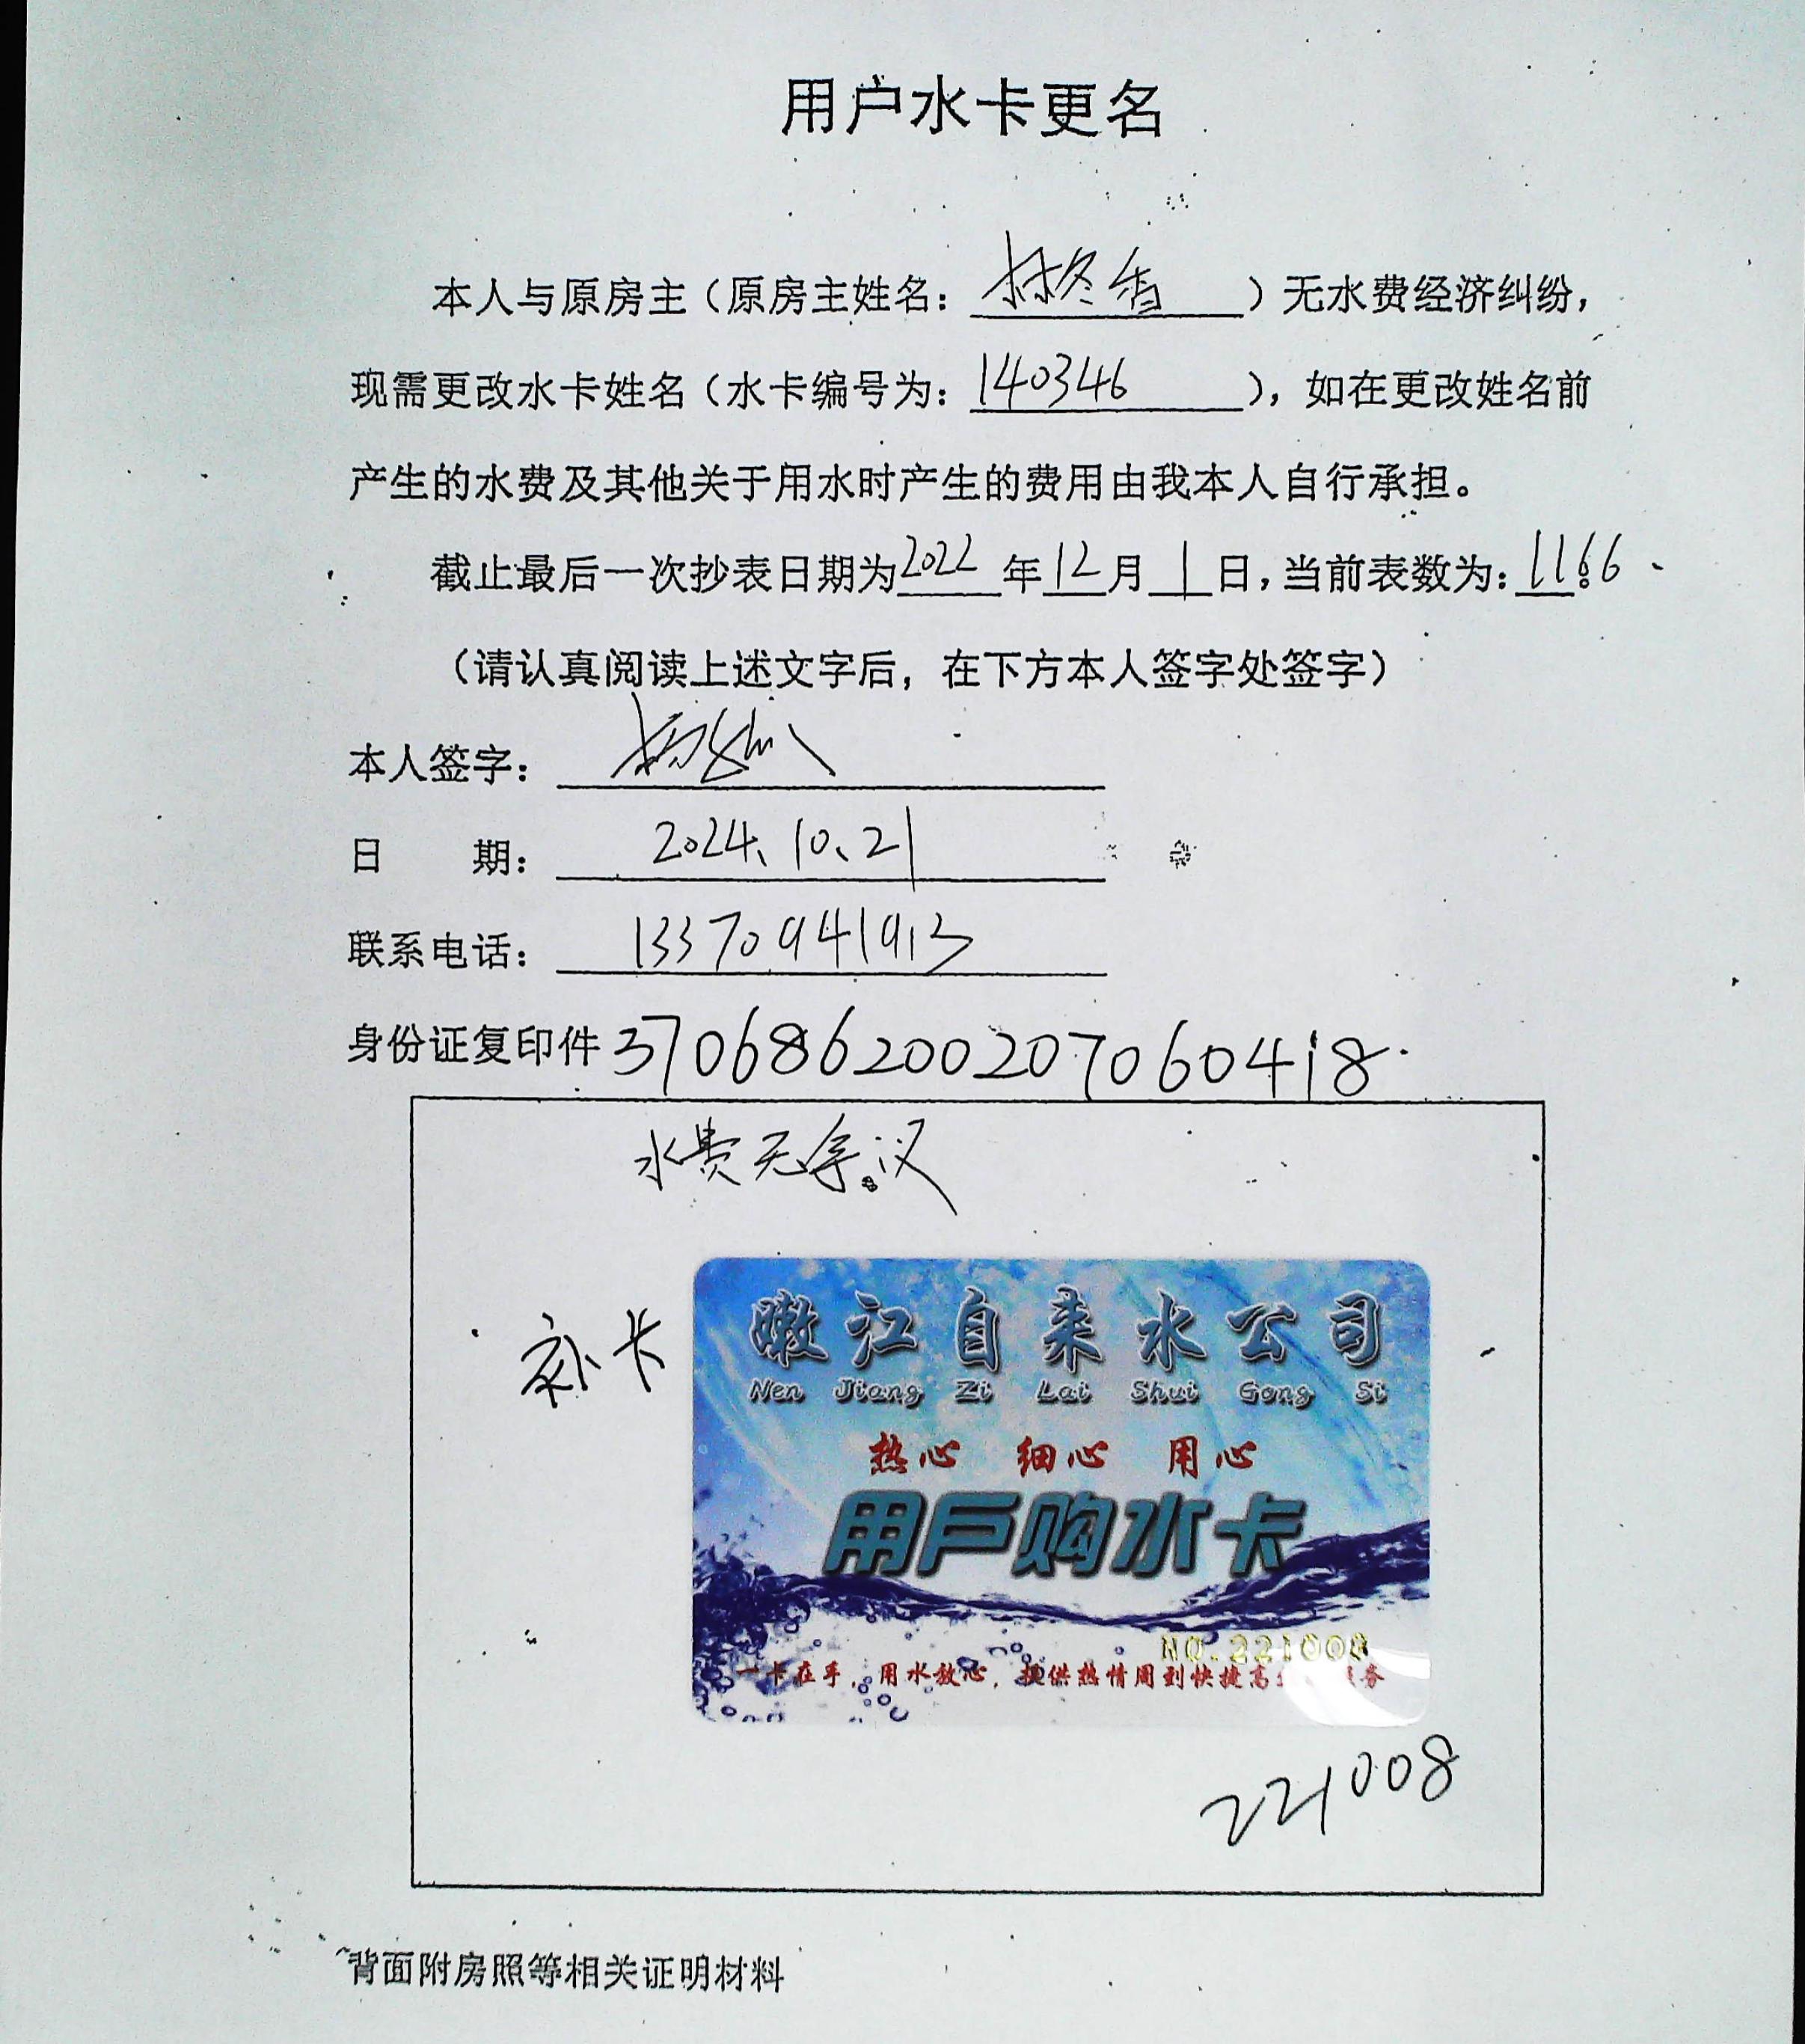 用户水卡更名
本人与原房主（原房主姓名：林冬香）无水费经济纠纷，
现需更改水卡姓名（水卡编号为：140346），如在更改姓名前
产生的水费及其他关于用水时产生的费用由我本人自行承担。
截止最后一次抄表日期为2022年12月1日，当前表数为：1166
（请认真阅读上述文字后，在下方本人签字处签字）
本人签字：
日 期：2024、10、21
联系电话：13370941913
身份证复印件 370686200207060418
水费无争议
补卡
嫩江自来水公司
Nen Jiang Zi Lai Shui Gong Si
热心 细心 用心
用户购水卡
NO.221008
一卡在手，用水放心，提供热情周到快捷高 服务
221008
背面附房照等相关证明材料